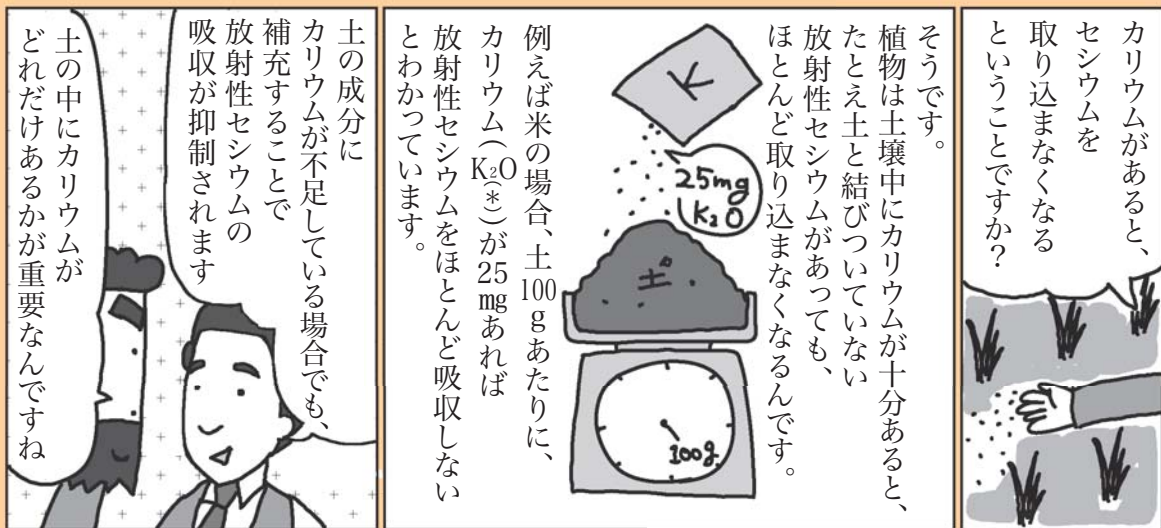 カリウムがあると、
セシウムを
取り込まなくなる
ということですか？
そうです。
植物は土壌中にカリウムが十分あると、
たとえ土と結びついていない
放射性セシウムがあっても、
ほとんど取り込まなくなるんです。
K
25mg
K₂O
土
100g
例えば米の場合、土100gあたりに、
カリウム（K₂O(*)）が25mgあれば
放射性セシウムをほとんど吸収しない
とわかっています。
土の成分に
カリウムが不足している場合でも、
補充することで
放射性セシウムの
吸収が抑制されます
土の中にカリウムが
どれだけあるかが重要なんですね